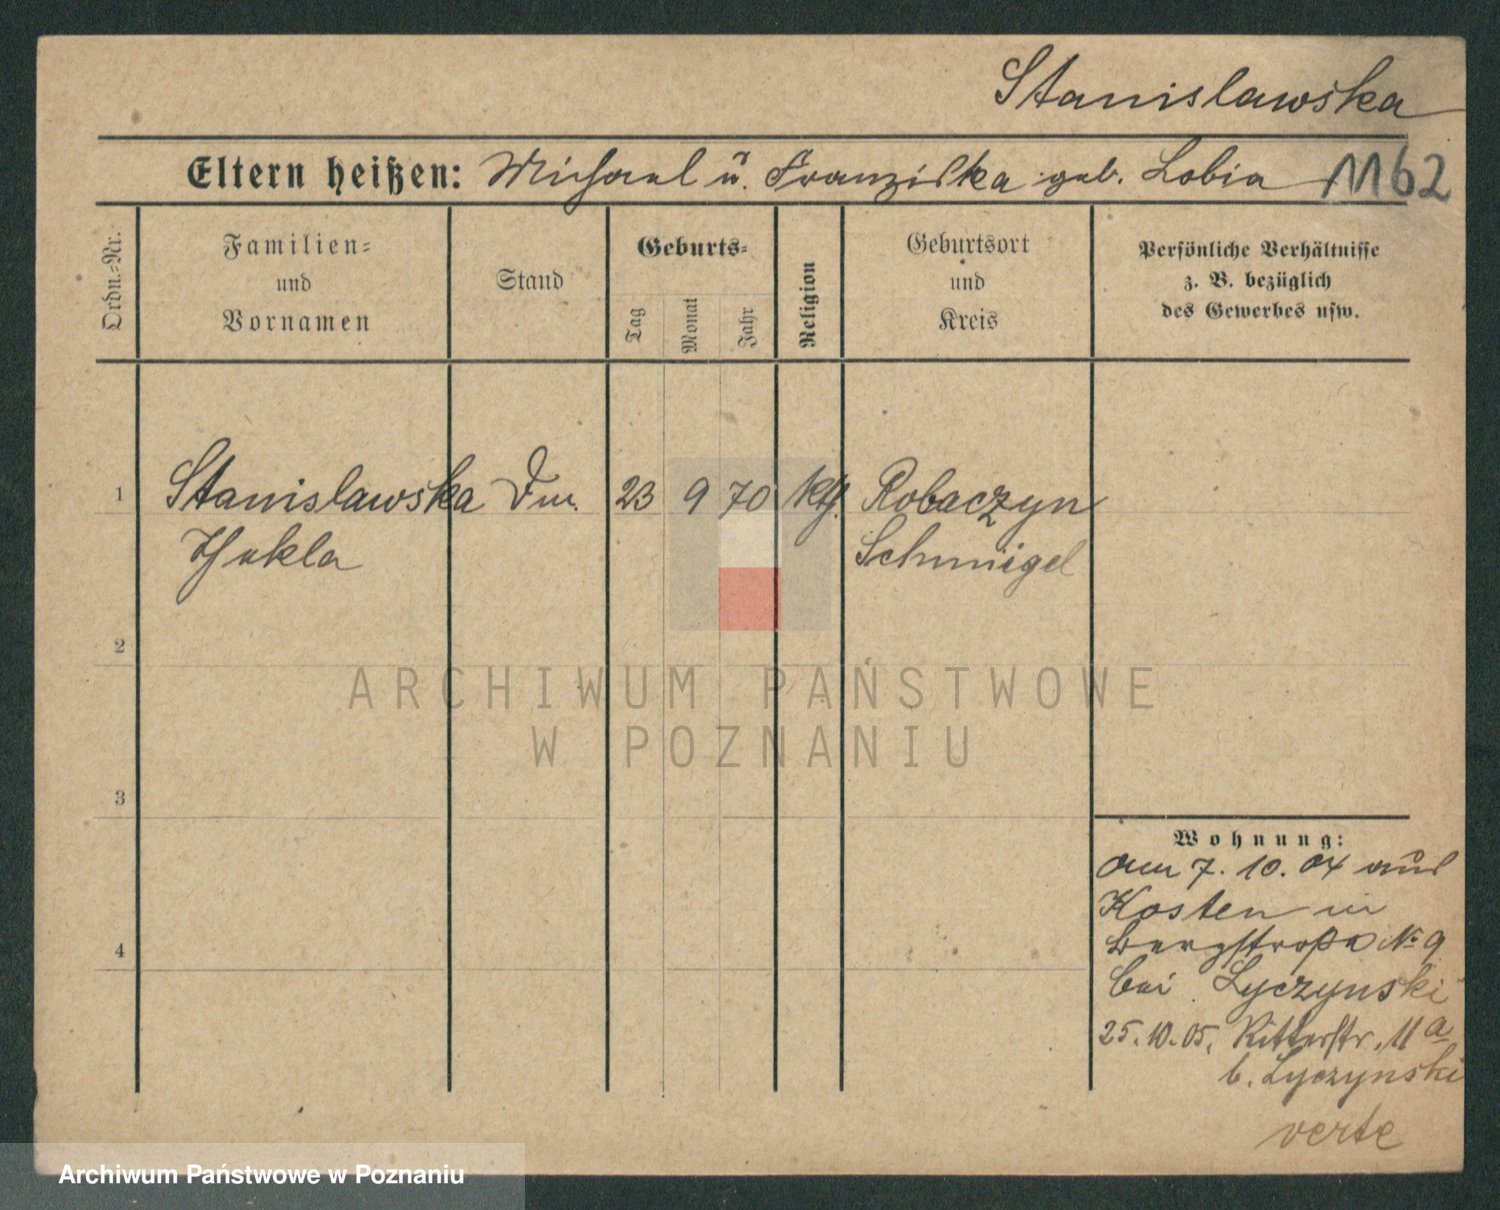 Stanislawska
Eltern heißen: Michael u. Franziska geb. Lobia 1162
Ordn.=Nr.
Familien=
und
Vornamen
Stand
Geburts=
Tag
Monat
Jahr
Religion
Geburtsort
und
Kreis
Persönliche Verhältnisse
z. B. bezüglich
des Gewerbes usw.
1 Stanislawska 23 9 70 kth. Robaczyn
Thekla Schmiegel
2
3
4
Wohnung:
Am 7. 10. 04 aus
Kosten in
Bergstraße No 9
bei Lyczynski
25.10.05. Ritterstr. 11a
b. Lyczynski
verte
ARCHIWUM PAŃSTWOWE
W POZNANIU
Archiwum Państwowe w Poznaniu